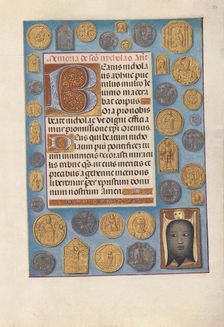 Memoria de sco nycholao. Ant
Beatus nichola
us adhuc pue
rulus multo ie
iunio macera
bat corpus
Ora pro nobis
beate nicholae ut digni efficia
mur promissio
Deus qui beatum nicho
laum pontificem
tuum innumeris decorasti mi
raculis
meritis et
precibus a gehenne incendiis
liberemur per xpistum domi
num nostrum Amen